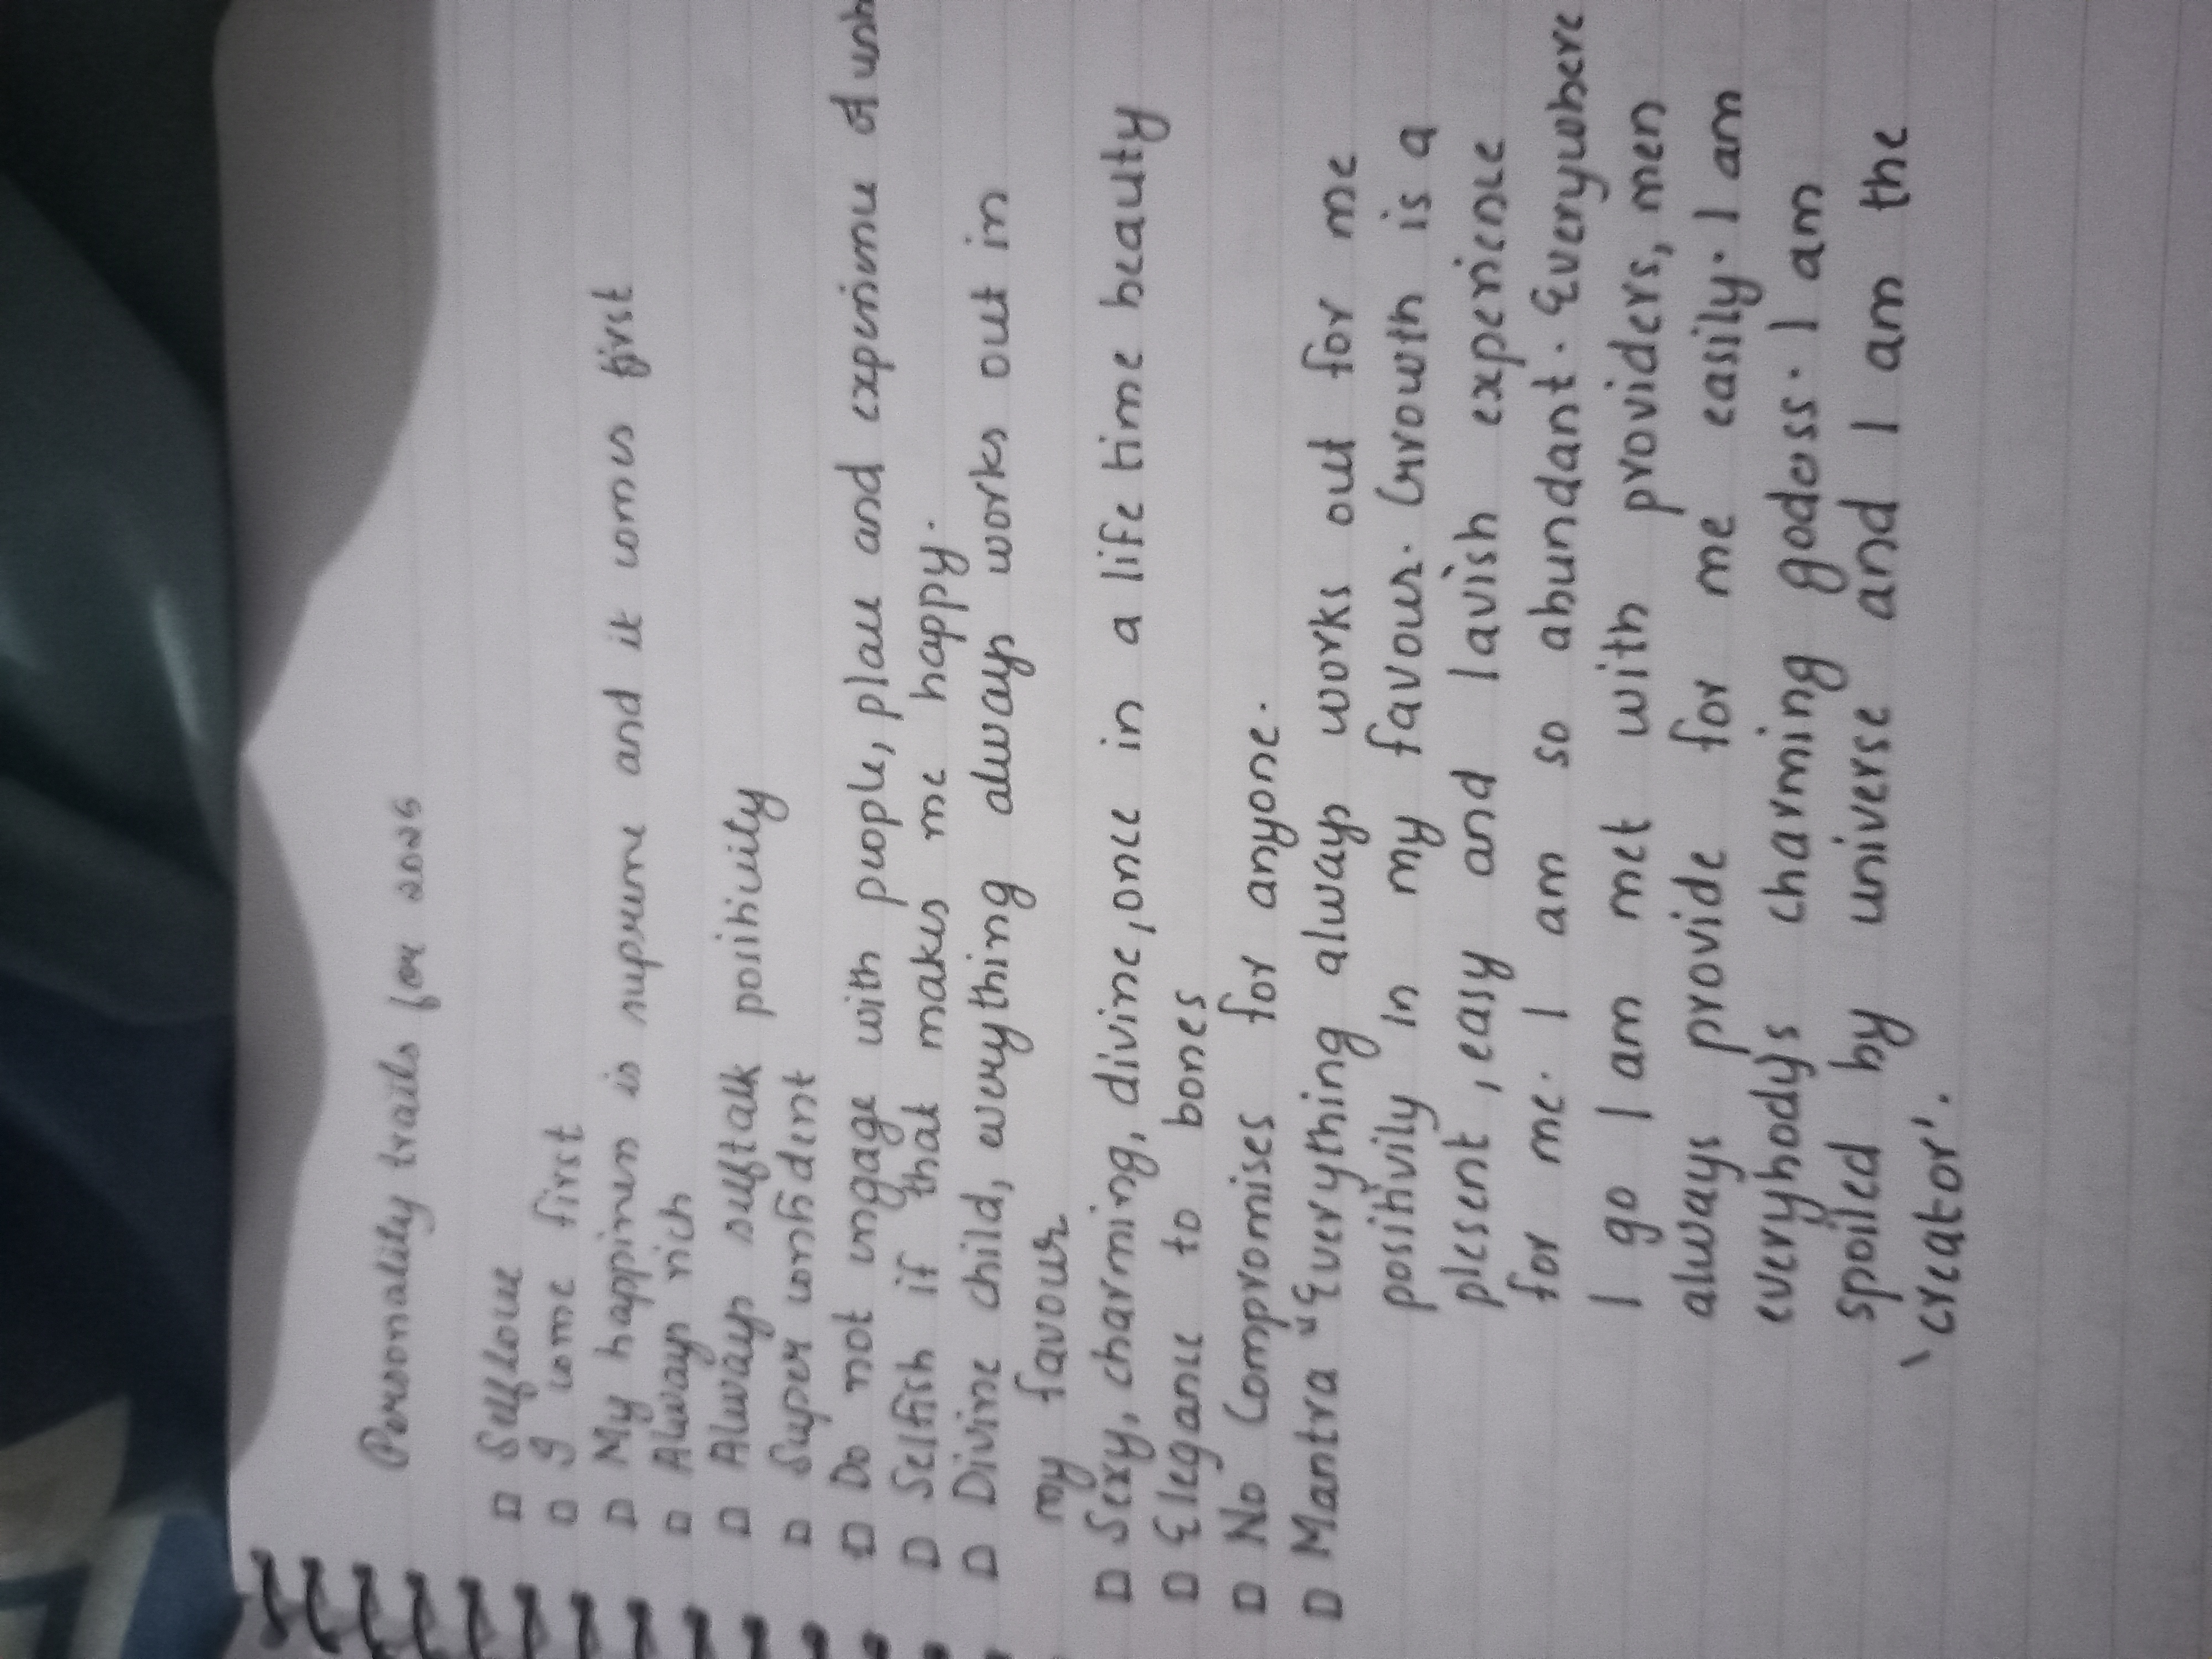 Personality traits for 2025
□ Self love
□ I come first
□ My happiness is supreme and it comes first
□ Always rich
□ Always selftalk positivity
□ Super confident
□ Do not engage with people, place and experience of
□ Selfish if that makes me happy.
□ Divine child, everything always works out in
my favour
□ Sexy, charming, divine, once in a life time beauty
□ Elegance to bones
□ No Compromises for anyone.
□ Mantra "Everything always works out for me
positivily in my favour. Growth is a
plesent, easy and lavish experience
for me. I am so abundant. Everywhere
I go I am met with providers, men
always provide for me easily. I am
everybodys charming godess. I am
spoiled by universe and I am the
'creator'.